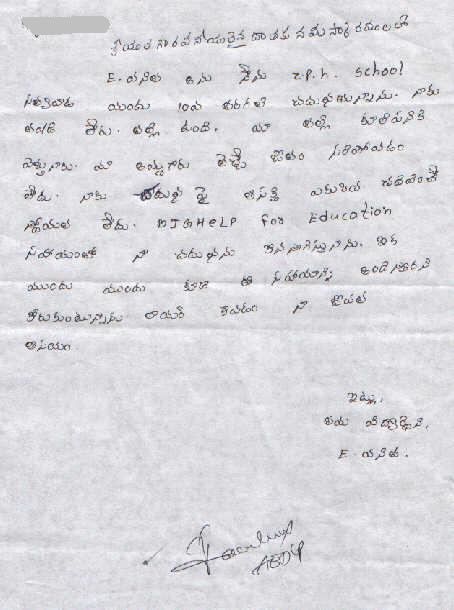 శ్రీయుత గౌరవనీయులైన దాతకు నమస్కారములతో
E. వనిత అను నేను Z.P.H. School
యందు 10వ తరగతి చదువుతున్నాను. నాకు
తండ్రి లేడు. తల్లి ఉంది. మా తల్లి కూలిపనికి
వెళ్తున్నారు. మా అమ్మగారు తెచ్చే జీతం సరిపోవడం
లేదు. నాకు చదువు పై ఆసక్తి ఎక్కువ చదివించే
స్తోమత లేదు. HELP For Education
సహాయంతో నా చదువును కొనసాగిస్తున్నాను. ఇక
ముందు ముందు కూడా ఈ సహాయాన్ని అందించాలని
కోరుకుంటున్నాను లాయర్ కావడం నా జీవిత
ఆశయం.
ఇట్లు,
తమ విద్యార్థిని,
E వనిత.